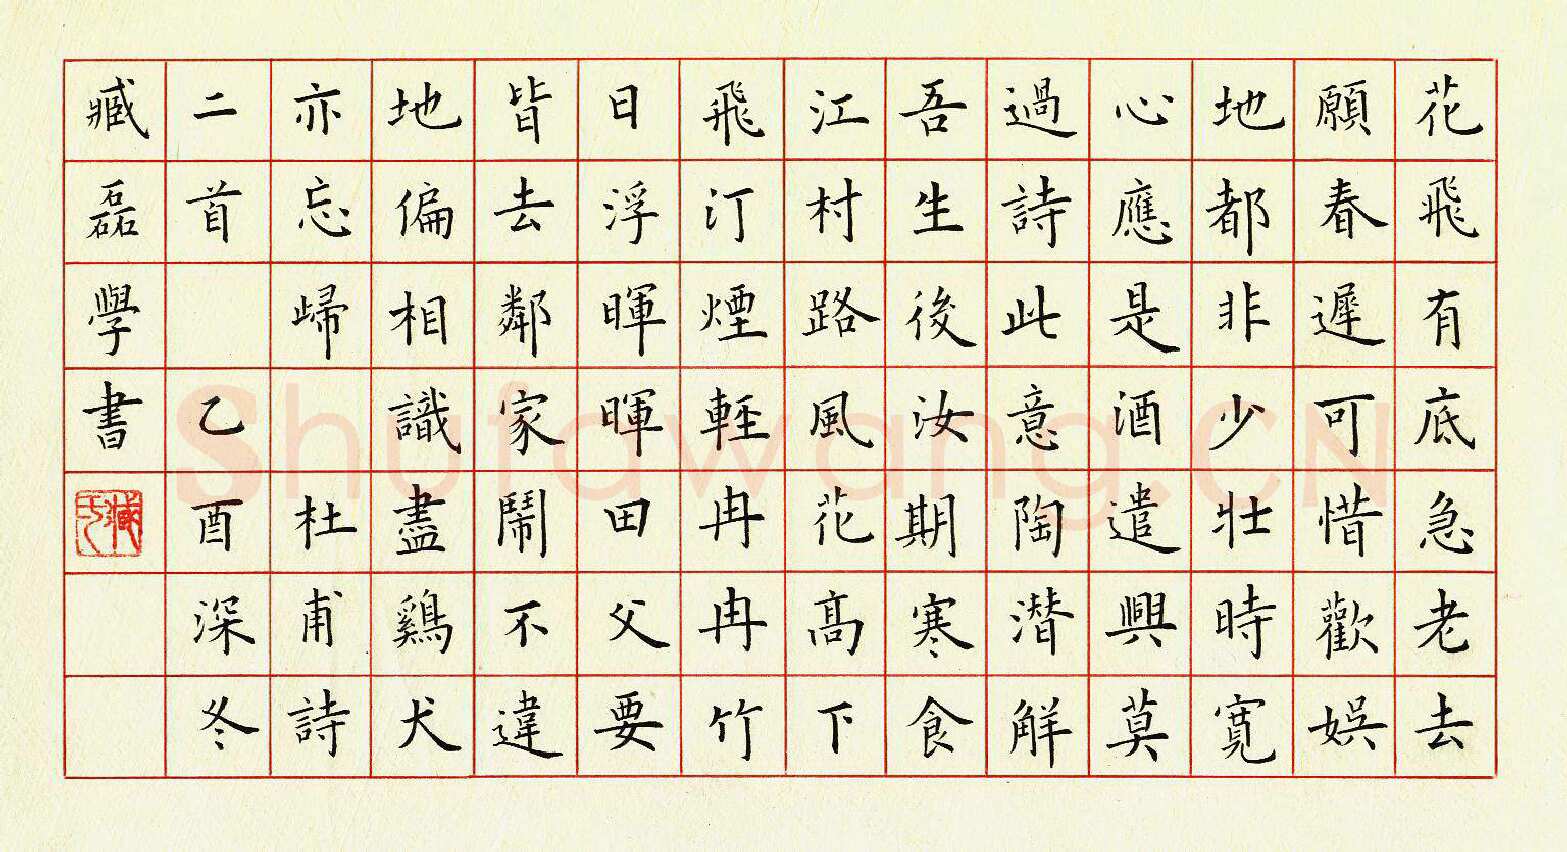 花飛有底急老去
願春遲可惜歡娛
地都非少壯時寬
心應是酒遣興莫
過詩此意陶潛解
吾生後汝期寒食
江村路風花髙下
飛汀煙輕冉冉竹
日浮暉暉田父要
皆去鄰家鬧不違
地偏相識盡鷄犬
亦忘歸 杜甫詩
二首 乙酉深冬
臧磊學書
臧氏
Shufawang.CN